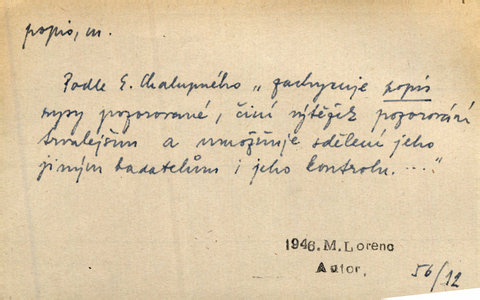 popis, m.
Podle E. Chalupného „zachycuje popis
rysy pozorované, činí výtěžek pozorování
trvalejším a umožňuje sdělení jeho
jiným badatelům i jeho kontrolu. ...."
1946. M. Lorenc
Autor.
56/12